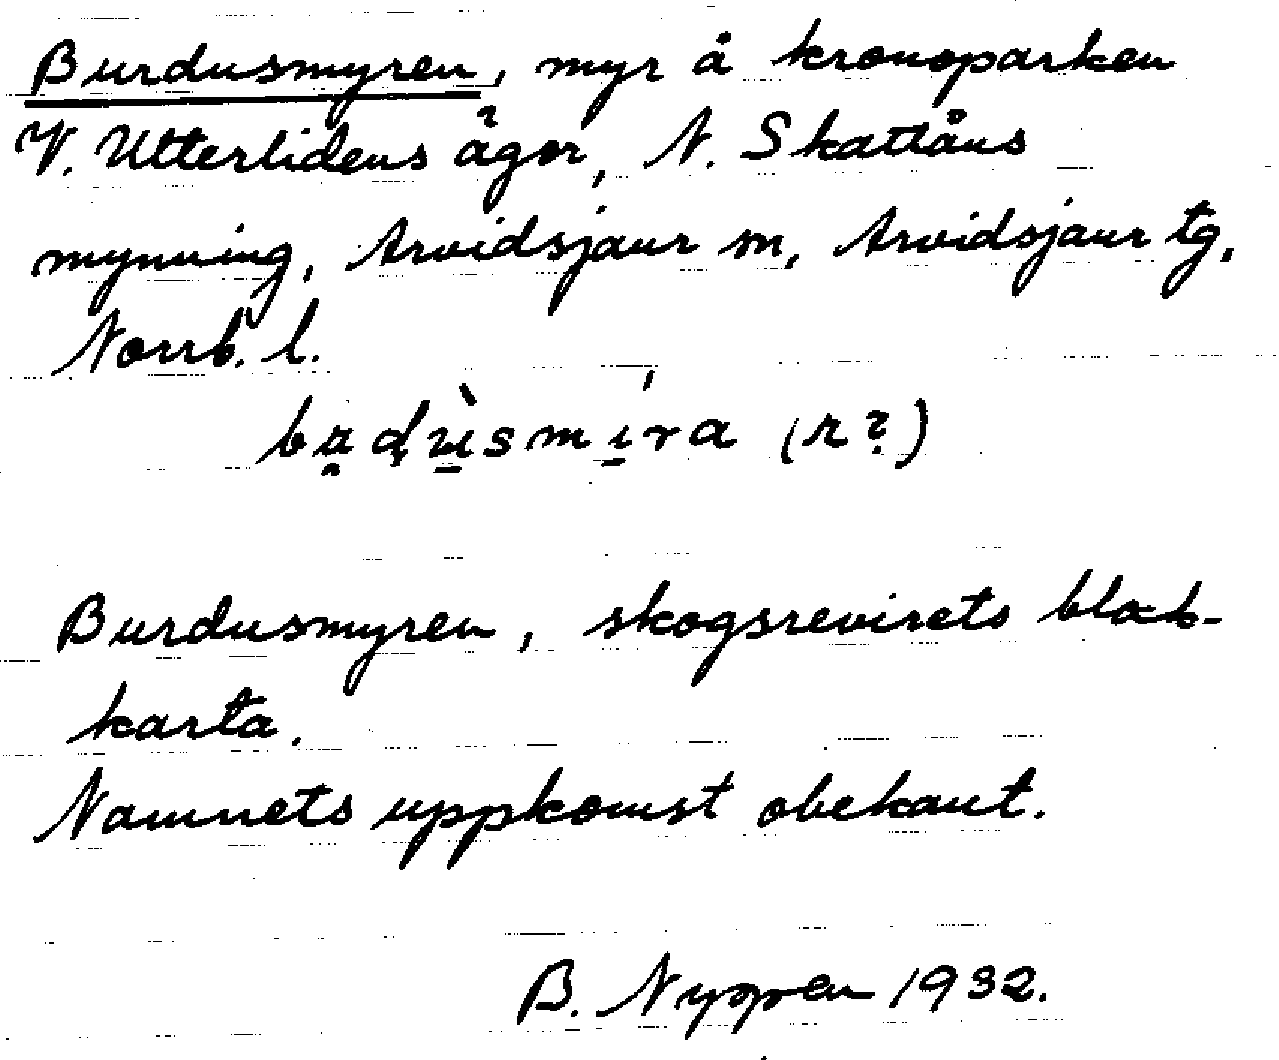 Burdusmyren, myr å kronoparken
V. Utterlidens ägor, N. Skattåns
mynning, Arvidsjaur sn, Arvidsjaur tg,
Norrb. l.
(r?)
Burdusmyren, skogsrevirets block-
karta.
Namnets uppkomst obekant.
B. Nygren 1932.